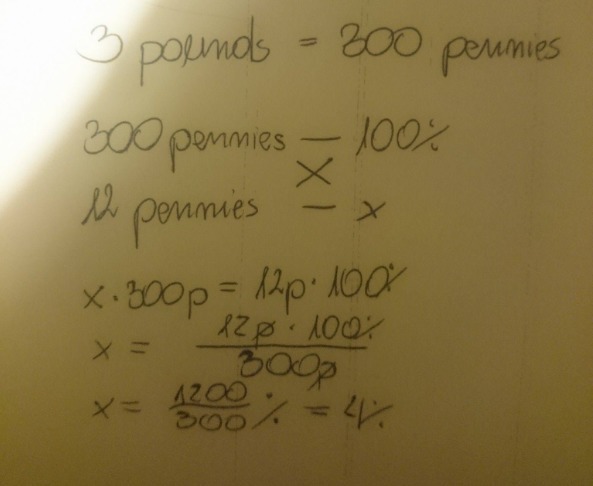 3 pounds = 300 pennies
300 pennies — 100%
X
12 pennies — x
x · 300p = 12p · 100%
x = 12p · 100% / 300p
x = 1200/300 % = 4%